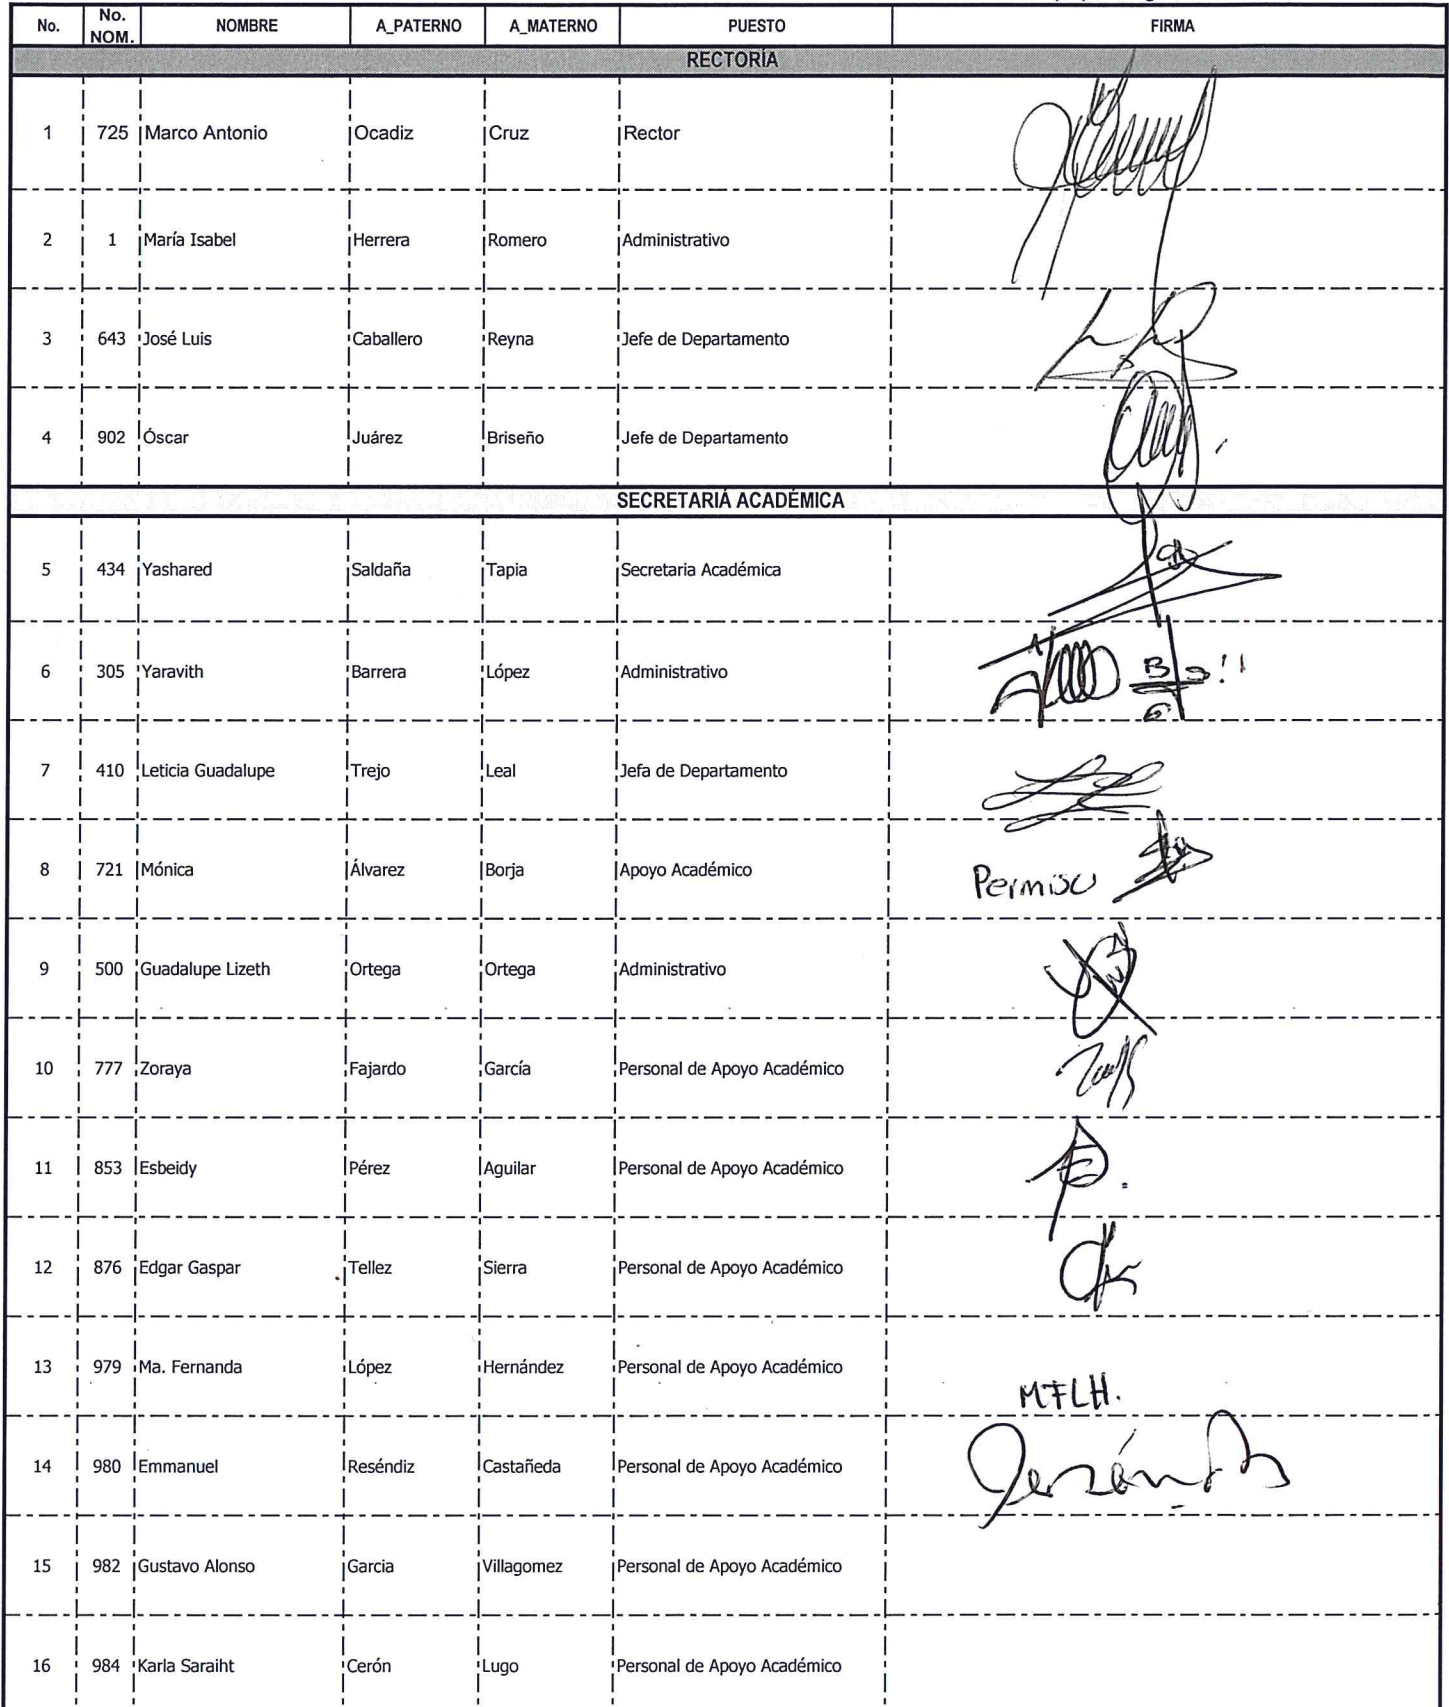 No. No. NOM. NOMBRE A_PATERNO A_MATERNO PUESTO FIRMA
RECTORÍA
1 725 Marco Antonio Ocadiz Cruz Rector
2 1 María Isabel Herrera Romero Administrativo
3 643 José Luis Caballero Reyna Jefe de Departamento
4 902 Óscar Juárez Briseño Jefe de Departamento
SECRETARIÁ ACADÉMICA
5 434 Yashared Saldaña Tapia Secretaria Académica
6 305 Yaravith Barrera López Administrativo
7 410 Leticia Guadalupe Trejo Leal Jefa de Departamento
8 721 Mónica Álvarez Borja Apoyo Académico Permiso
9 500 Guadalupe Lizeth Ortega Ortega Administrativo
10 777 Zoraya Fajardo García Personal de Apoyo Académico
11 853 Esbeidy Pérez Aguilar Personal de Apoyo Académico
12 876 Edgar Gaspar Tellez Sierra Personal de Apoyo Académico
13 979 Ma. Fernanda López Hernández Personal de Apoyo Académico MFLH.
14 980 Emmanuel Reséndiz Castañeda Personal de Apoyo Académico
15 982 Gustavo Alonso Garcia Villagomez Personal de Apoyo Académico
16 984 Karla Saraiht Cerón Lugo Personal de Apoyo Académico